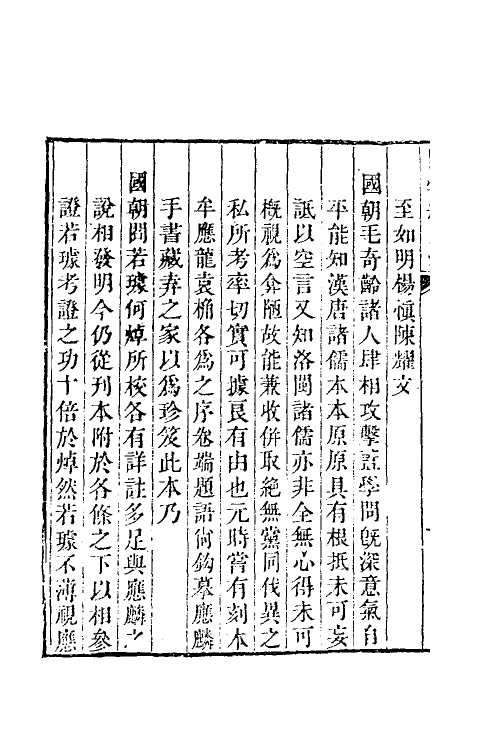 至如明楊愼陳耀文
國朝毛奇齡諸人肆相攻擊葢學問旣深意氣自
平能知漢唐諸儒本本原原具有根抵未可妄
詆以空言又知洛閩諸儒亦非全無心得未可
槪視爲弇陋故能兼收併取絕無黨同伐異之
私所考率切實可據良有由也元時嘗有刻本
牟應龍袁桷各爲之序卷端題語尙鈎摹應麟
手書藏弆之家以爲珍笈此本乃
國朝閻若璩何焯所校各有詳註多足與應麟之
說相發明今仍從刊本附於各條之下以相參
證若璩考證之功十倍於焯然若璩不薄視應